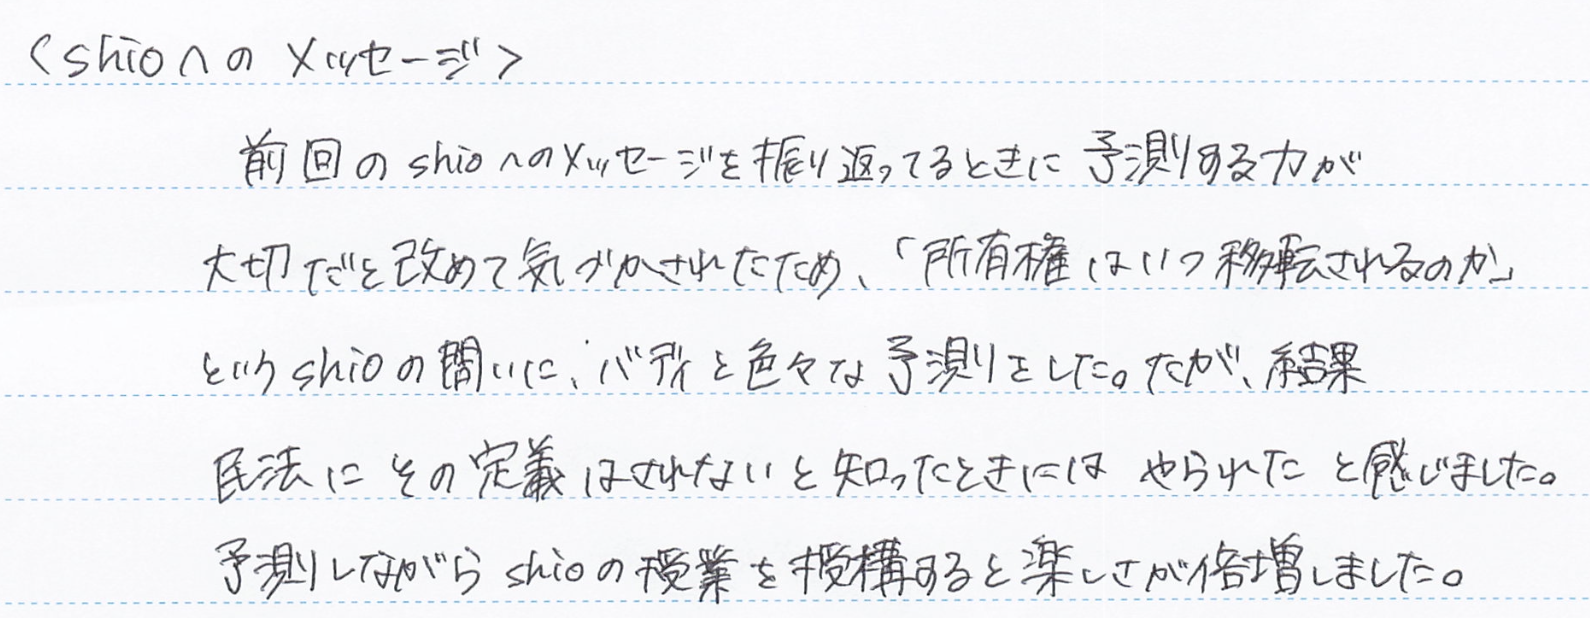 〈shioへのメッセージ〉
前回のshioへのメッセージを振り返ってるときに予測する力が
大切だと改めて気づかされたため、「所有権はいつ移転されるのか」
というshioの問いに、バディと色々な予測りをした。たが、結果
民法にその定義はされないと知ったときには やられた と感じました。
予測しながらshioの授業を授構すると楽しさが倍増しました。